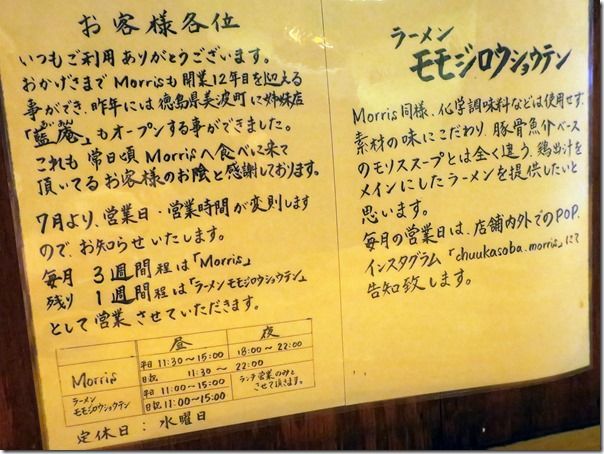 お客様各位
いつもご利用ありがとうございます。
おかげさまでMorrisも開業12年目を迎える
事ができ、昨年には徳島県美波町に姉妹店
「藍庵」もオープンする事ができました。
これも常日頃Morrisへ食べに来て
頂いてるお客様のお陰と感謝しております。
7月より、営業日・営業時間が変則します
ので、お知らせいたします。
毎月 3週間程は「Morris」
残り 1週間程は「ラーメンモモジロウショウテン」
として営業させていただきます。
昼 夜
Morris 平日 11:30〜15:00 18:00〜22:00
日祝 11:30 〜 22:00
ラーメン モモジロウショウテン 平日 11:00〜15:00 ランチ営業のみとさせて頂きます。
日祝 11:00〜15:00
定休日:水曜日
ラーメン
モモジロウショウテン
Morris同様、化学調味料などは使用せず、
素材の味にこだわり、豚骨魚介ベース
のモリススープとは全く違う、鶏出汁を
メインにしたラーメンを提供したいと
思います。
毎月の営業日は、店舗内外でのPOP、
インスタグラム「chuukasoba.morris」にて
告知致します。